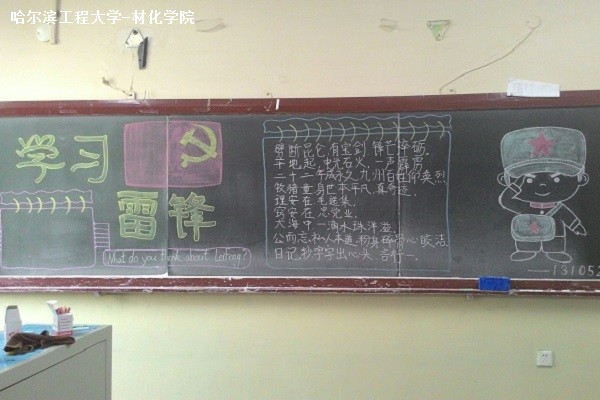 哈尔滨工程大学-材化学院
学习
雷锋
What do you think about Leifeng?
劈断昆仑,有宝剑,锋芒
平地起,电光石火,一声霹雳
二十二年成永久,九州百世仰英烈
牧猪童,身世本平凡,真奇
理安在,毛选集
窍安在,忠党业
大海中,一滴水珠洋溢
公而忘私人本色
日记抄字字出心头,言行一
131052